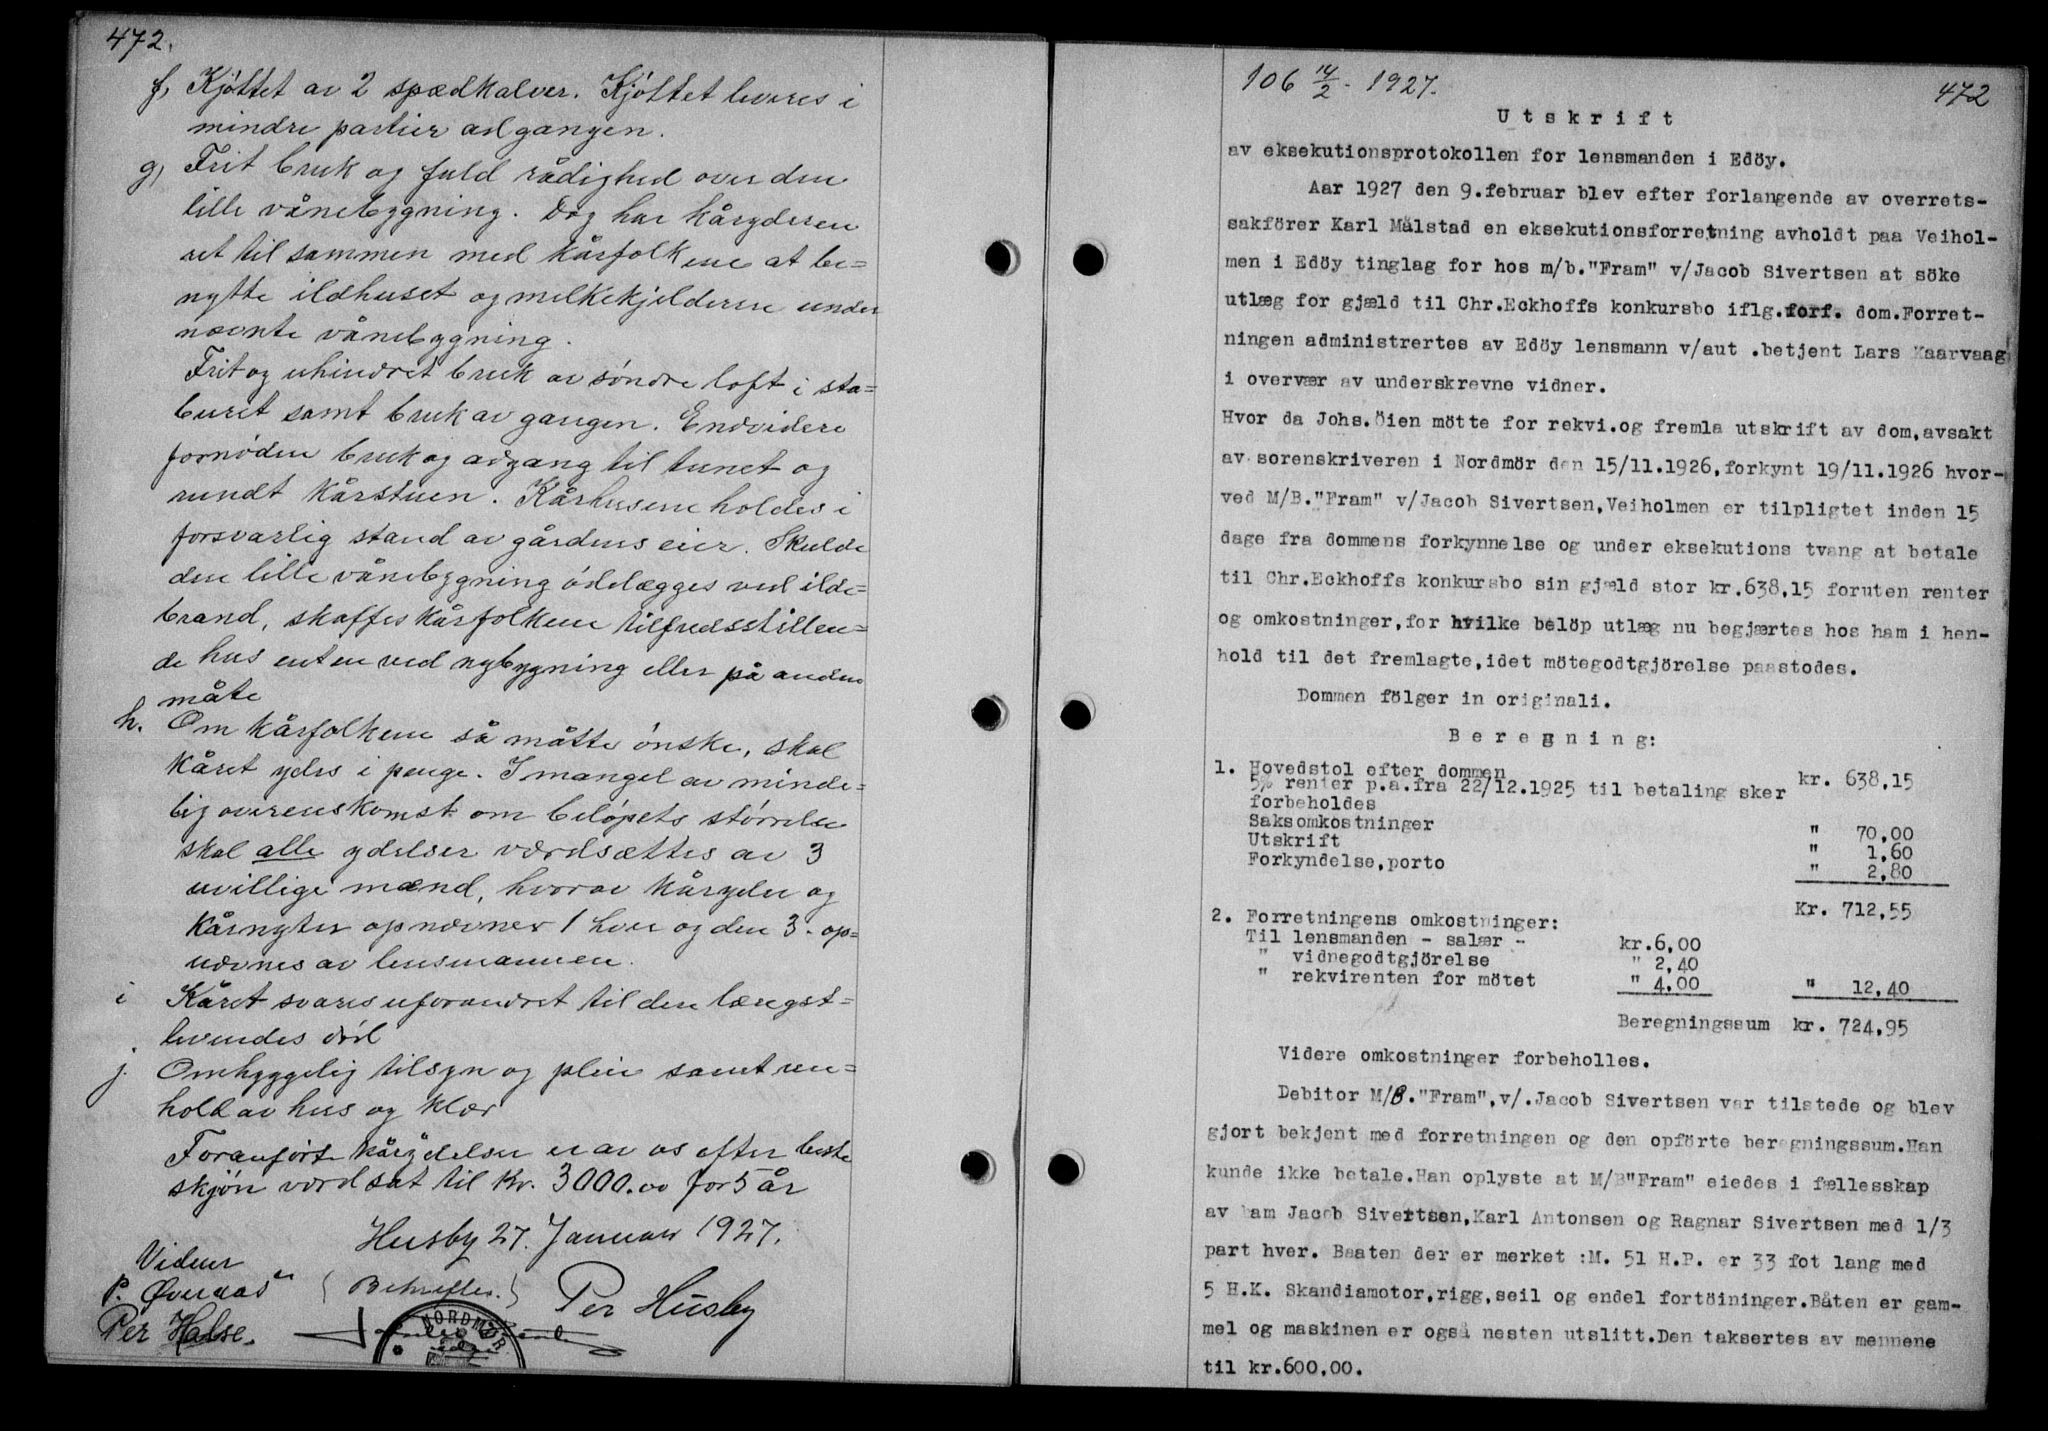 472.
f, Kjøttet av 2 spædkalver. Kjøttet leveres i
mindre partier ad gangen.
g, Frit bruk og fuld rådighed over den
lille vånebygning. Dog har kåryderen
ret til sammen med kårfolkene at be=
nytte ildhuset og melkekjelderen under
nævnte vånebygning.
Frit og uhindret bruk av søndre loft i sta=
buret samt bruk av gangen. Endvidere
fornøden bruk og adgang til tunet og
rundt kårstuen. Kårhusene holdes i
forsvarlig stand av gårdens eier. Skulde
den lille vånebygning ödelægges ved ilde=
brand, skaffes kårfolkene tilfredsstillen=
de hus enten ved nybygning eller på anden
måte
h. Om kårfolkene så måtte ønske, skal
kåret ydes i penge. I mangel av minde=
lig overenskomst om beløpets størrelse
skal alle ydelser værdsættes av 3
uvillige mænd, hvorav kåryder og
kårnyter opnævner 1 hver og den 3. op=
nævnes av lensmannen.
i Kåret svares uforandret til den længst=
levendes død
j. Omhyggelig tilsyn og pleie samt ren=
hold av hus og klær
Foranførte kårydelser er av os efter beste
skjøn værdsat til Kr. 3000.00 for 5 år
Husby 27. Januar 1927.
Vidner
P. Øveraas (Bekreftes.) Per Husby
Per Halse.
NORDMØR
106 14/2 - 1927. 472
Utskrift
av eksekutionsprotokollen for lensmanden i Edöy.
Aar 1927 den 9.februar blev efter forlangende av overrets-
sakförer Karl Målstad en eksekutionsforretning avholdt paa Veihol-
men i Edöy tinglag for hos m/b."Fram" v/Jacob Sivertsen at söke
utlæg for gjæld til Chr.Eckhoffs konkursbo iflg.forf. dom.Forret-
ningen administrertes av Edöy lensmann v/aut .betjent Lars Kaarvaag
i overvær av underskrevne vidner.
Hvor da Johs.Öien mötte for rekvi.og fremla utskrift av dom,avsakt
av sorenskriveren i Nordmör den 15/11.1926,forkynt 19/11.1926 hvor-
ved M/B."Fram" v/Jacob Sivertsen,Veiholmen er tilpligtet inden 15
dage fra dommens forkynnelse og under eksekutions tvang at betale
til Chr.Eckhoffs konkursbo sin gjæld stor kr.638,15 foruten renter
og omkostninger,for hvilke belöp utlæg nu begjærtes hos ham i hen-
hold til det fremlagte,idet mötegodtgjörelse paastodes.
Dommen fölger in originali.
Beregning:
1. Hovedstol efter dommen kr. 638,15
5% renter p.a.fra 22/12.1925 til betaling sker
forbeholdes
Saksomkostninger " 70,00
Utskrift " 1,60
Forkyndelse,porto " 2,80
Kr. 712,55
2. Forretningens omkostninger:
Til lensmanden - salær - kr.6,00
" vidnegodtgjörelse " 2,40
" rekvirenten for mötet " 4,00 " 12,40
Beregningssum kr. 724,95
Videre omkostninger forbeholles.
Debitor M/B."Fram",v/.Jacob Sivertsen var tilstede og blev
gjort bekjent med forretningen og den opförte beregningssum.Han
kunde ikke betale.Han oplyste at M/B"Fram" eiedes i fællesskap
av ham Jacob Sivertsen,Karl Antonsen og Ragnar Sivertsen med 1/3
part hver. Baaten der er merket :M. 51 H.P. er 33 fot lang med
5 H.K. Skandiamotor,rigg,seil og endel fortöininger.Båten er gam-
mel og maskinen er også nesten utslitt.Den taksertes av mennene
til kr.600,00.